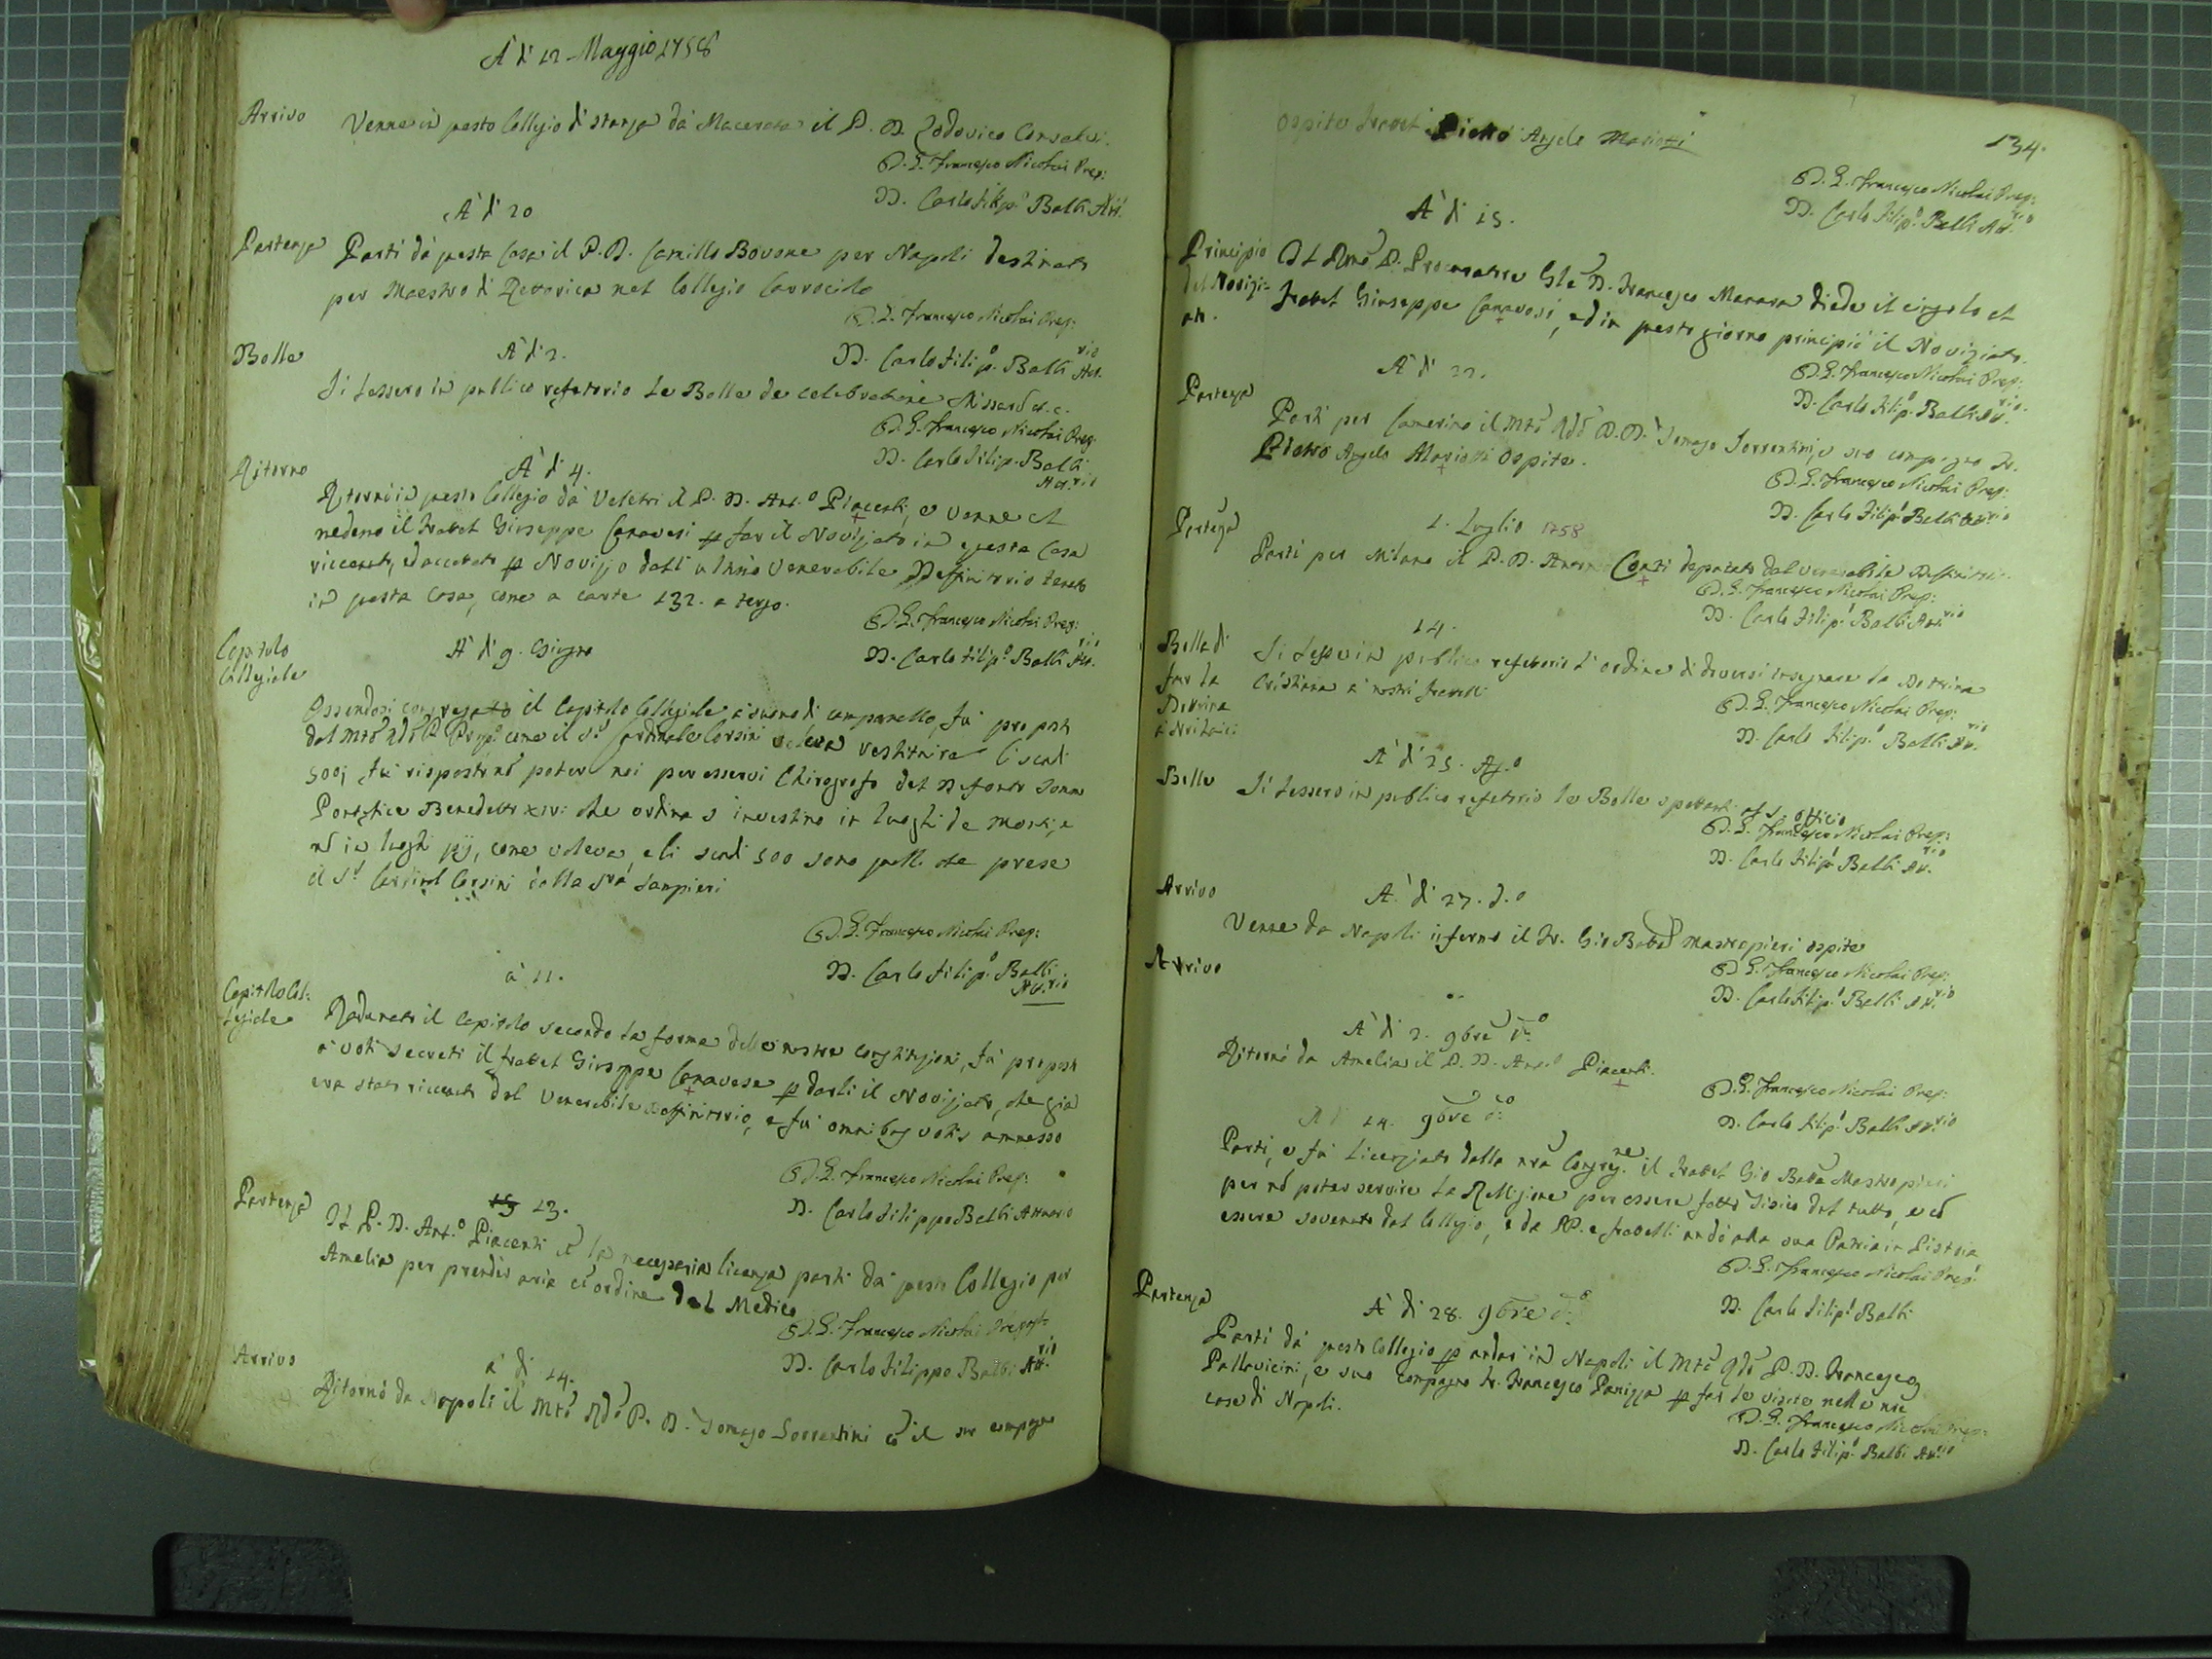 A dì 12 Maggio 1758
Arrivo
Venne in questo Collegio di stanza da Macerata il P. D. Lodovico Consalvi.
D. G. Francesco Nicolai Prep:
D. Carlo Filip.o Balbi Att.
A dì 20
Partenza
Partì da questa Casa il P. D. Camillo Bovone per Napoli destinato
per Maestro di Rettorica nel Collegio
D. G. Francesco Nicolai Prep:
Bolle
A dì 2.
D. Carlo Filip.o Balbi Att.rio
Si lessero in publico refetorio le Bolle de celebratione Missarũ et c.
D. G. Francesco Nicolai Prep:
D. Carlo Filip. Balbi
Att.rio
Ritorno
A dì 4.
Ritornò in questo Collegio da Veletri il P. D. Ant.o Piacenti, e venne il
medemo il Fratel Giuseppe Canavesi p far il Novizjato in questa Casa
riccevuto, ed accettato p Novizjo dall' ultimo Venerabile Deffinitorio tenuto
in questa Casa, come a carte 132. a tergo.
D. G. Francesco Nicolai Prep:
Capitolo
Collegiale
A dì 9. Giugno
D. Carlo Filip.o Balbi Att.rio
Essendosi congregato il Capitolo Collegiale a suono di campanello, fù proposto
dal Mtõ Rdõ P. Prep.o come il S.r Cardinale Corsini voleva restituire li scudi
500; fù risposto nõ poter noi per esservi Chirografo del Defonto Somm
Pontefice Benedetto XIV: che ordina s'investino in luoghi de Monti, e
nõ in luoghi pij, come voleva, e li scudi 500 sono quelli che prese
il S.r Cardinal Corsini dalla Srã Sampieri
D. G. Francesco Nicolai Prep:
D. Carlo Filip.o Balbi
Att.rio
Capitolo Col:
legiale
a 11.
Radunato il Capitolo secondo la forma delle nostre Constituzioni, fù proposto
a voti secreti il fratel Giuseppe Canavese p darli il Novizjato, che già
era stato riccevuto dal Venerabile Deffinitorio, e fù omnibus votis ammesso
D. G. Francesco Nicolai Prep:
Partenza
15 13.
D. Carlo Filippo Balbi Attuario
Il P. D. Ant.o Piacenti cõ la necessaria licenza partì da questo Collegio per
Amelia per prender aria cõ ordine del Medico
D. G. Francesco Nicolai Preposto
D. Carlo Filippo Balbi Att.rio
Arrivo
a dì 14.
Ritornò da Napoli il Mtõ Rdõ P. D. Tomaso Sorrentini cõ il suo compagno
Ospite Fratel Pietro Angelo Mariotti
134.
D. G. Francesco Nicolai Prep:
D. Carlo Filip.o Balbi Att.rio
A dì 15.
Principio
del Novizi:
ato.
Il Rmõ P. Procuratore Gle D. Francesco Manara diede il cingolo al
fratel Giuseppe Canavesi, ed in questo giorno principiò il Noviziato.
D. G. Francesco Nicolai Prep:
D. Carlo Filip.o Balbi Att.rio
A dì 22.
Partenza
Partì per Camerino il Mtõ Rdõ P. D. Tomaso Sorrentini, e suo compagno Fr.
Pietro Angelo Mariotti Ospite.
D. G. Francesco Nicolai Prep:
D. Carlo Filip.o Balbi Att.rio
Partenza
1. Luglio 1758
Partì per Milano il P. D. Antonio Conti deputato dal venerabile Deffinitorio.
D. G. Francesco Nicolai Prep:
D. Carlo Filip.o Balbi Att.rio
14.
Bolle di
far la
Dottrina
a
Si lesse in publico refetorio l'ordine di doversi insegnare la Dottrina
Cristiana a nostri fratelli
D. G. Francesco Nicolai Prep:
D. Carlo Filip.o Balbi Att.rio
A dì 25. Ag.o
Bolle
Si lessero in publico refetorio le Bolle spettanti al S. Officio
D. G. Francesco Nicolai Prep:
D. Carlo Filip.o Balbi Att.rio
Arrivo
A dì 27. d.o
Venne da Napoli infermo il Fr. Gio Batta Mastropieri ospite
D. G. Francesco Nicolai Prep:
D. Carlo Filip.o Balbi Att.rio
Arrivo
A dì 2. 9bre d.o
Ritornò da Amelia il P. D. Ant.o Piacenti.
D. G. Francesco Nicolai Prep:
D. Carlo Filip.o Balbi Att.rio
A dì 14. 9bre d.o
Partì, e fù licenziato dalla nrã Congreg.ne il fratel Gio Batta Mastropieri
per nõ poter servire la Religione per essere fatto Tisico del tutto, e cõ
essere sovenuto dal Collegio, e da PP. e fratelli andò alla sua Patria in Pistoia
D. G. Francesco Nicolai Prep.
D. Carlo Filip.o Balbi
Partenza
A dì 28. 9bre d.o
Partì da questo Collegio p andar in Napoli il Mtõ Rdõ P. D. Francesco
Pallavicini, e suo compagno Fr. Francesco Panizza p far la visita nelle nre
case di Napoli.
D. G. Francesco Nicolai Prep:
D. Carlo Filip.o Balbi Att.rio